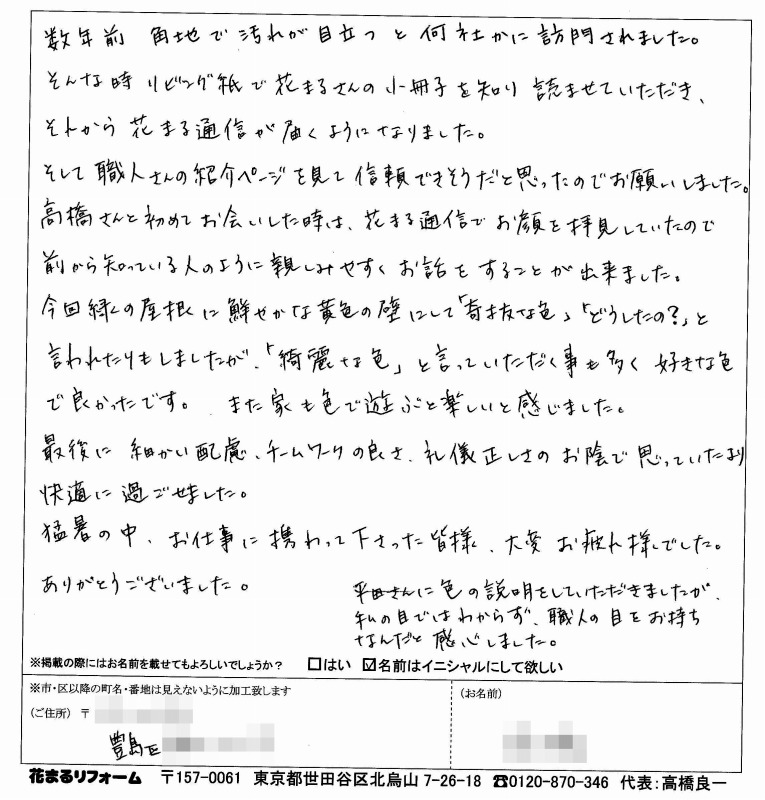 数年前 角地で汚れが目立つと何社かに訪問されました。
そんな時リビング紙で花まるさんの小冊子を知り読ませていただき、
それから花まる通信が届くようになりました。
そして職人さんの紹介ページを見て信頼できそうだと思ったのでお願いしました。
高橋さんと初めてお会いした時は、花まる通信でお顔を拝見していたので
前から知っている人のように親しみやすくお話をすることが出来ました。
今回緑の屋根に鮮やかな黄色の壁にして「奇抜な色」「どうしたの?」と
言われたりもしましたが、「綺麗な色」と言っていただく事も多く 好きな色
で良かったです。 また家も色で遊ぶと楽しいと感じました。
最後に 細かい配慮、チームワークの良さ、礼儀正しさのお陰で思っていたより
快適に過ごせました。
猛暑の中、お仕事に携わって下さった皆様、大変お疲れ様でした。
ありがとうございました。
平田さんに色の説明をしていただきましたが、
私の目ではわからず、職人の目をお持ち
なんだと感心しました。
※掲載の際にはお名前を載せてもよろしいでしょうか? □はい ☑名前はイニシャルにして欲しい
※市・区以降の町名・番地は見えないように加工致します
(ご住所) 〒
(お名前)
豊島区
花まるリフォーム 〒157-0061 東京都世田谷区北烏山 7-26-18 ☎0120-870-346 代表:高橋良一